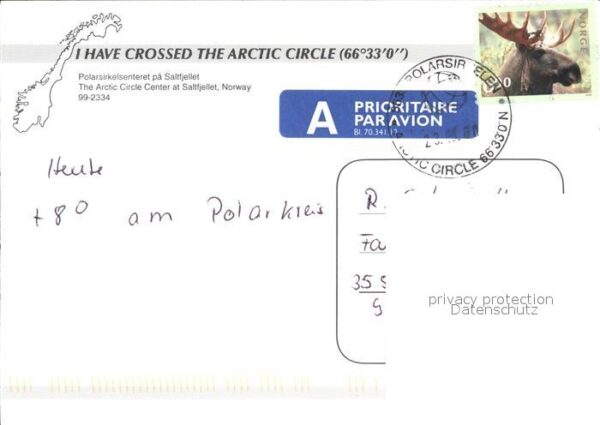 I HAVE CROSSED THE ARCTIC CIRCLE (66°33'0'')
Polarsirkelsenteret på Saltfjellet
The Arctic Circle Center at Saltfjellet, Norway
99-2334
NORGE
POLARSIRKELEN
ARCTIC CIRCLE 66°33'0 N
A PRIORITAIRE
PAR AVION
Bl. 70.341
Heute
+8° am Polarkreis
R.
Fa
35
privacy protection
Datenschutz